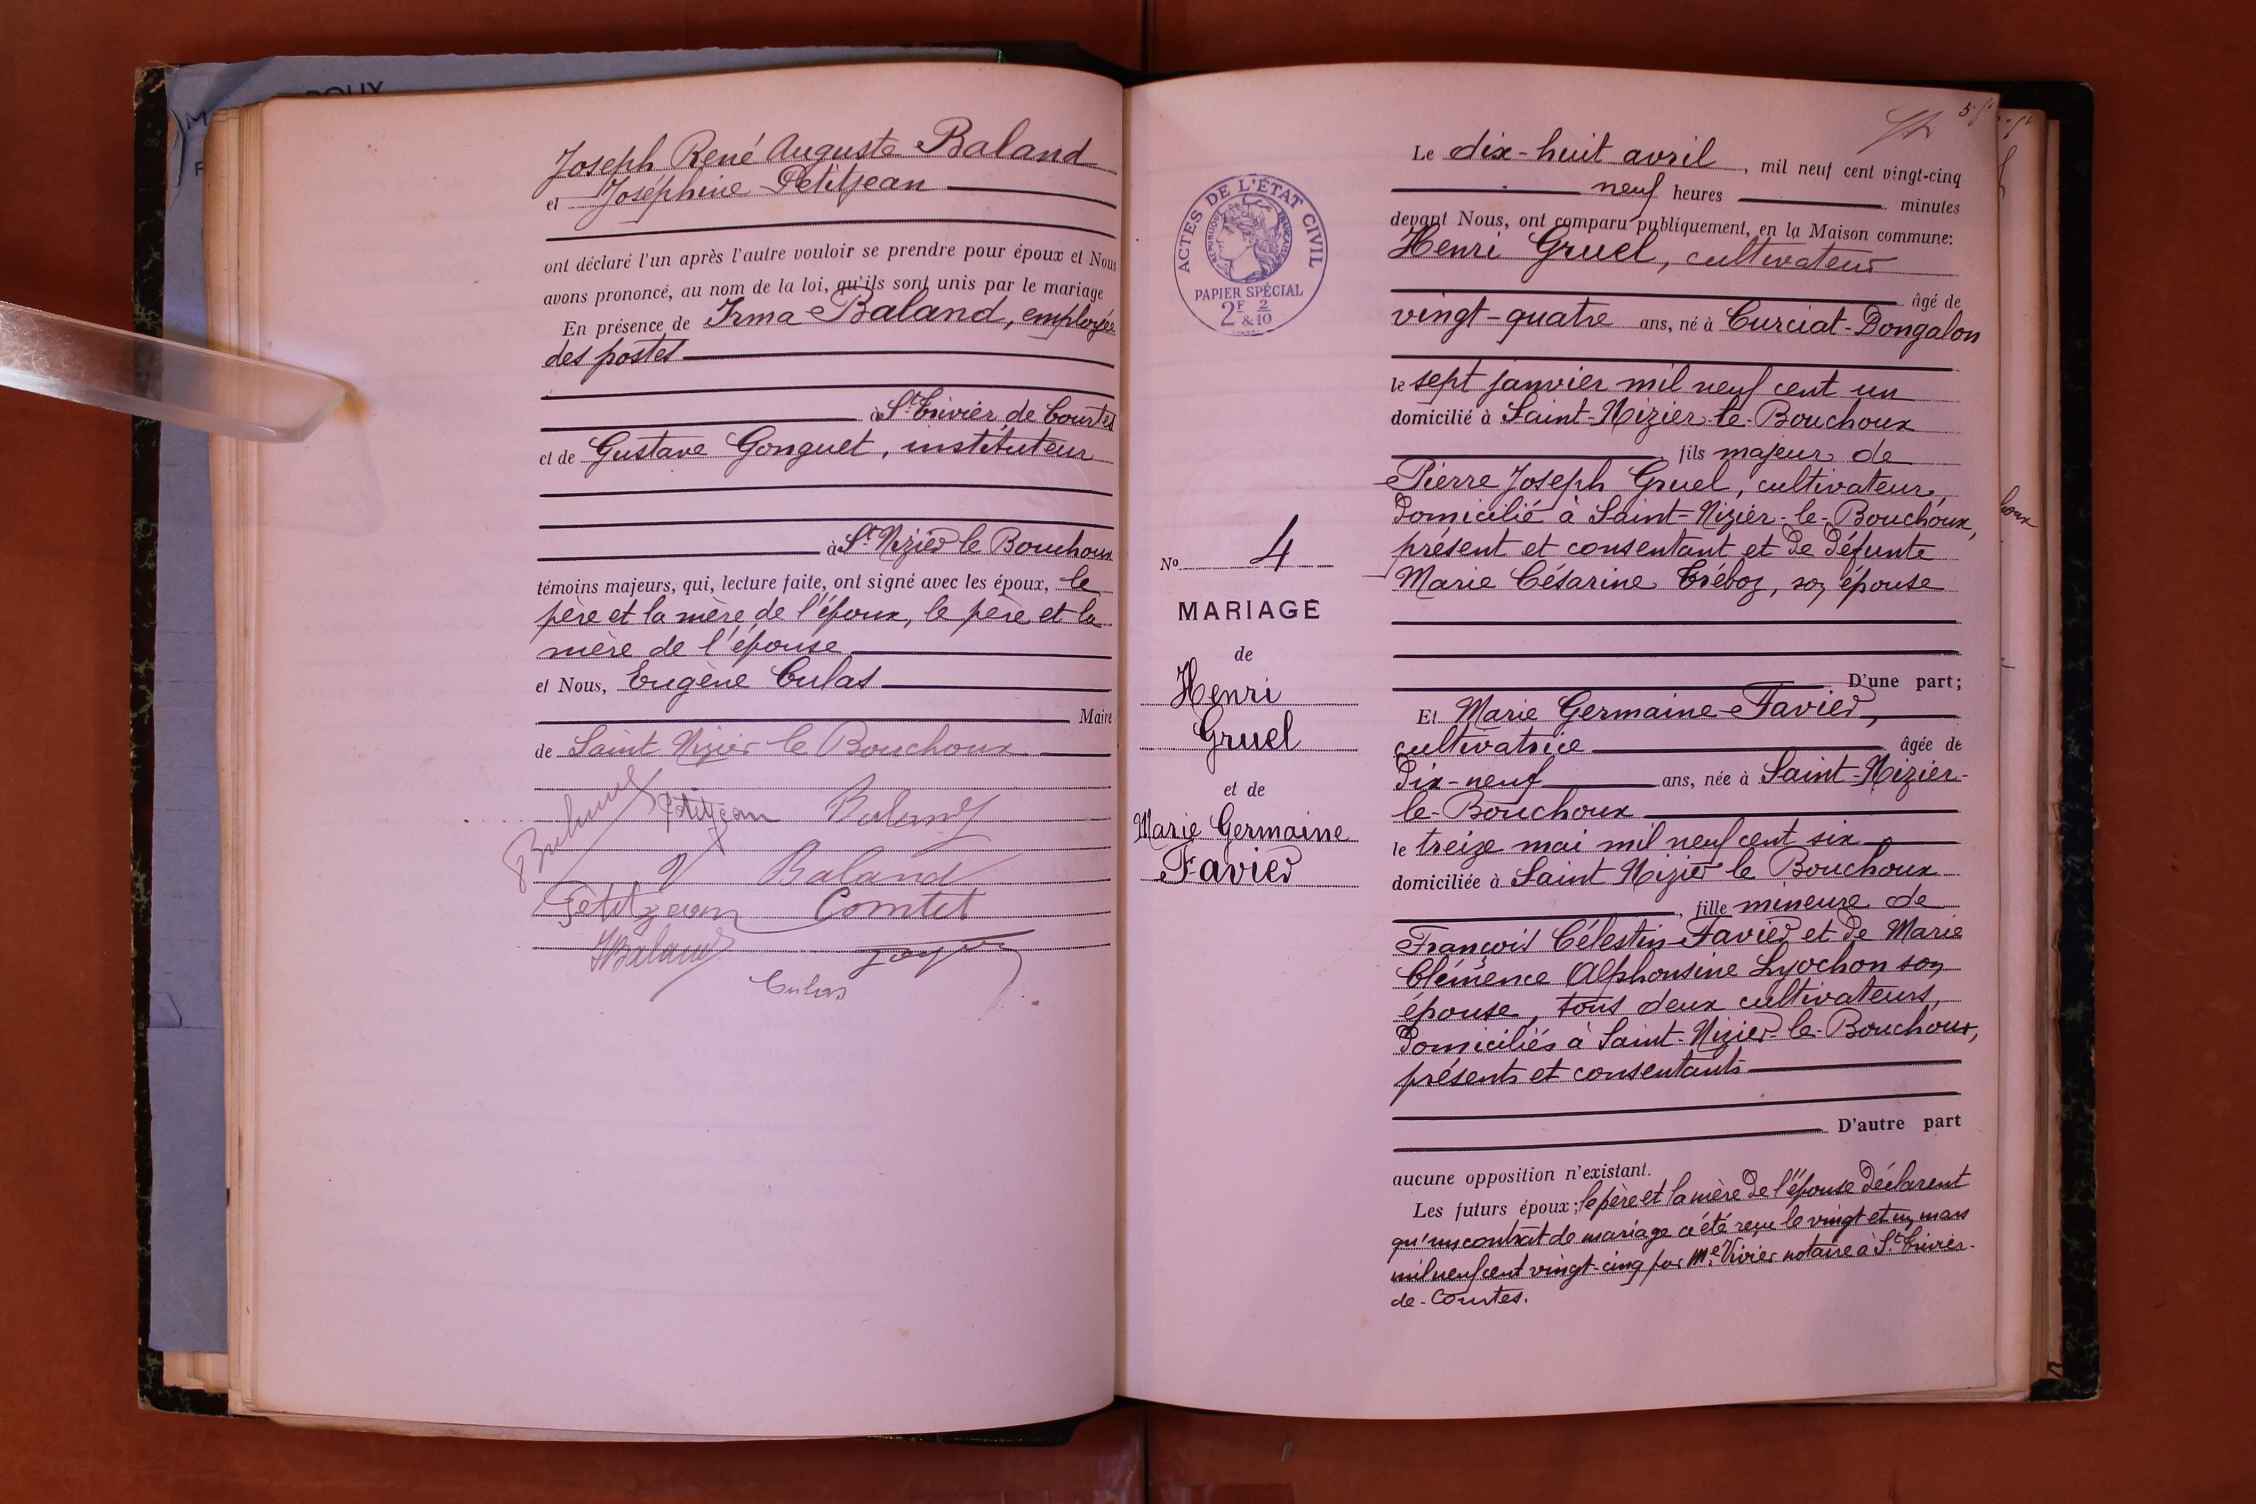 Joseph René Auguste Baland
et Joséphine Petitjean
ont déclaré l'un après l'autre vouloir se prendre pour époux et Nous
avons prononcé, au nom de la loi, qu'ils sont unis par le mariage
En présence de Irma Baland, employée
des postes
à St Trivier de Courtes
et de Gustave Gonguet, instituteur
à St Nizier le Bouchoux
témoins majeurs, qui, lecture faite, ont signé avec les époux, le
père et la mère de l'époux, le père et la
mère de l'épouse
et Nous, Eugène Culas
Maire
de Saint Nizier le Bouchoux
Petitjean Baland
Baland
Petitjean Comtet
Baland
Culas
ACTES DE L'ÉTAT CIVIL
RÉPUBLIQUE FRANÇAISE
PAPIER SPÉCIAL
2F & 2/10
No 4
MARIAGE
de
Henri
Gruel
et de
Marie Germaine
Favier
Le dix-huit avril, mil neuf cent vingt-cinq
neuf heures minutes
devant Nous, ont comparu publiquement, en la Maison commune:
Henri Gruel, cultivateur
âgé de
vingt-quatre ans, né à Curciat-Dongalon
le sept janvier mil neuf cent un
domicilié à Saint-Nizier-le-Bouchoux
fils majeur de
Pierre Joseph Gruel, cultivateur,
domicilié à Saint-Nizier-le-Bouchoux,
présent et consentant et de défunte
Marie Césarine Tréboz, son épouse
D'une part;
Et Marie Germaine Favier,
cultivatrice âgée de
dix-neuf ans, née à Saint-Nizier-
le-Bouchoux
le treize mai mil neuf cent six
domiciliée à Saint Nizier le Bouchoux
, fille mineure de
François Célestin Favier et de Marie
Clémence Alphonsine Lyochon son
épouse, tous deux cultivateurs,
domiciliés à Saint-Nizier-le-Bouchoux,
présents et consentants
D'autre part
aucune opposition n'existant.
Les futurs époux; le père et la mère de l'épouse déclarent
qu'un contrat de mariage a été reçu le vingt et un mars
mil neuf cent vingt-cinq par Me Vivier notaire à St Trivier-
de-Courtes.